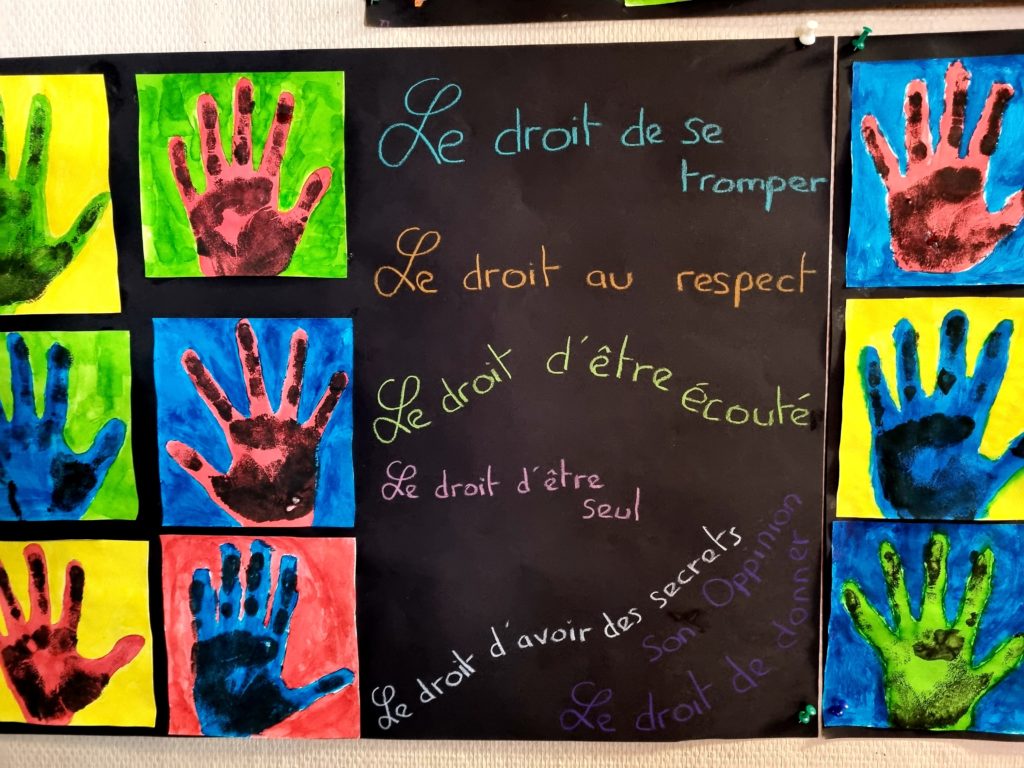 Le droit de se
tromper
Le droit au respect
Le droit d'être écouté
Le droit d'être
seul
Le droit d'avoir des secrets
Le droit de donner
Son Oppinion